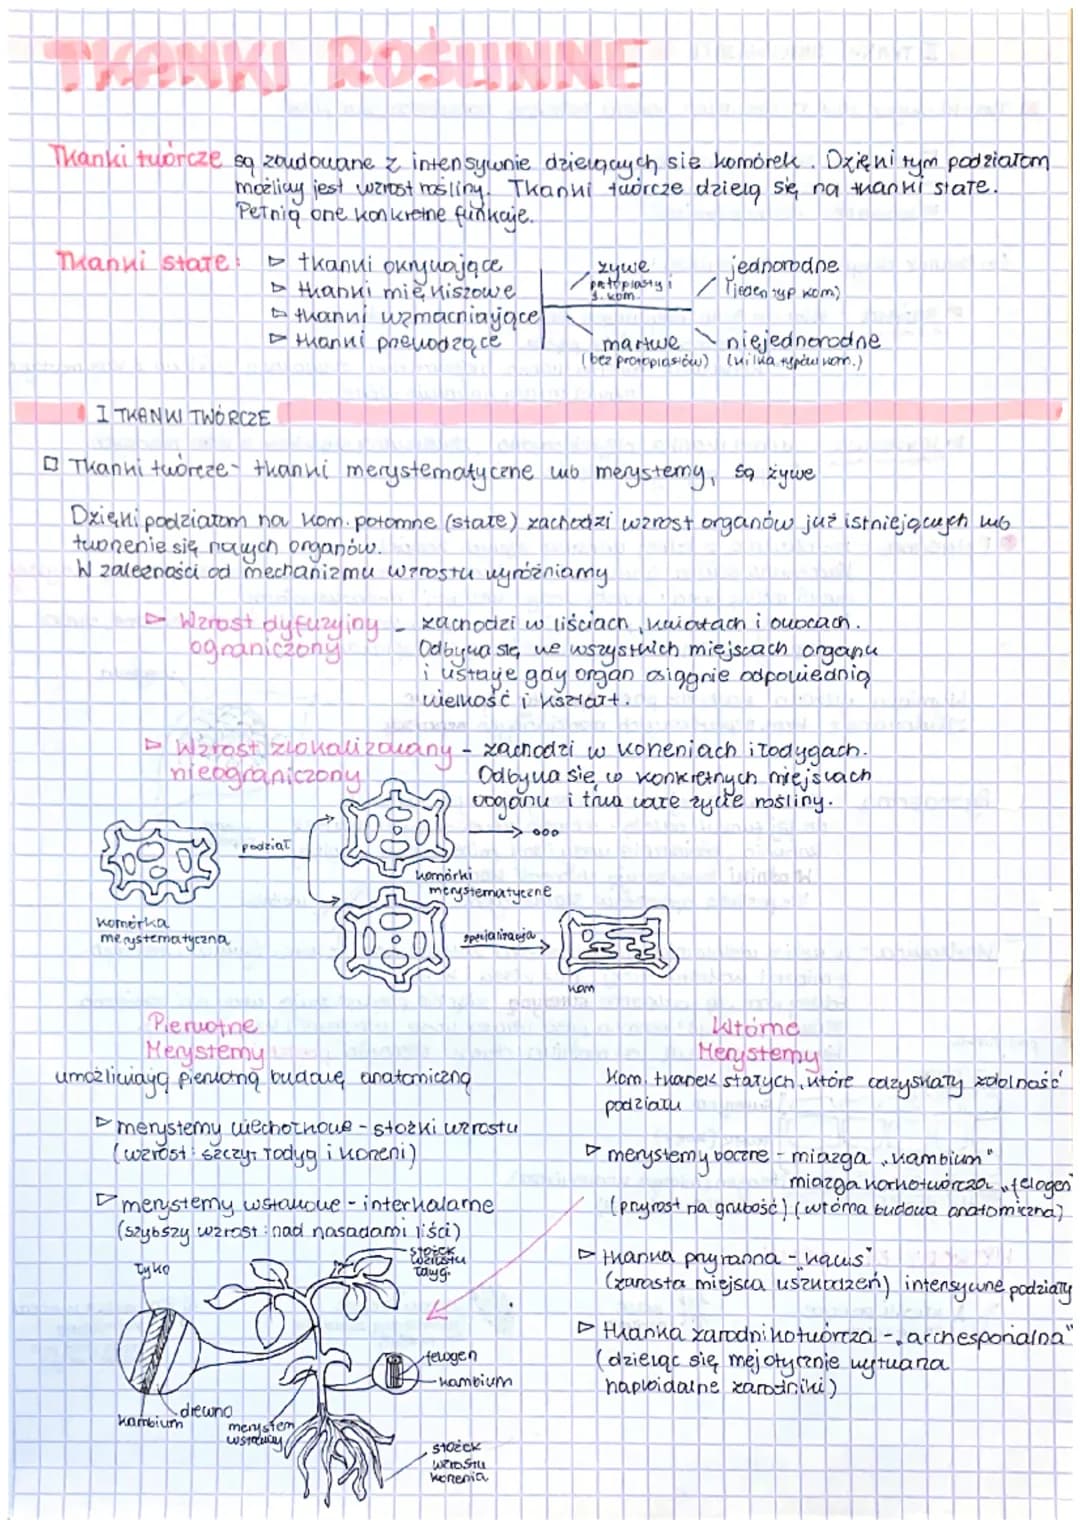 TKANKI ROŚLINNE
Tkanki twórcze są zbudowane z intensywnie dzielących się komórek. Dzięki tym podziałom
możliwy jest wzrost rośliny. Tkanki twórcze dzielą się na tkanki stałe.
Pełnią one konkretne funkcje.
Tkanki stałe: ▷ tkanki okrywające
▷ tkanki miękiszowe
▷ tkanki wzmacniające
▷ tkanki przewodzące
żywe
protoplasty i
ż. kom.
martwe
(bez protoplastów)
jednorodne
(jeden typ kom)
niejednorodne
(kilka typów kom.)
I TKANKI TWÓRCZE
□ Tkanki twórcze - tkanki merystematyczne lub merystemy, są żywe
Dzięki podziałom na kom. potomne (stałe) zachodzi wzrost organów już istniejących lub
tworzenie się nowych organów.
W zależności od mechanizmu wzrostu wyróżniamy
▷ Wzrost dyfuzyjny - zachodzi w liściach, kwiatach i owocach.
ograniczony Odbywa się we wszystkich miejscach organu
i ustaje gdy organ osiągnie odpowiednią
wielkość i kształt.
▷ Wzrost zlokalizowany - zachodzi w korzeniach i łodygach.
nieograniczony Odbywa się w konkretnych miejscach
organu i trwa całe życie rośliny.
podział
komórki
merystematyczne
komórka
merystematyczna
specjalizacja
kom
Pierwotne
Merystemy
umożliwiają pierwotną budowę anatomiczną
▷ merystemy wierzchołkowe - stożki wzrostu
(wzrost: szczyt łodyg i korzeni)
▷ merystemy wstawowe - interkalarne
(szybszy wzrost: nad nasadami liści)
Wtórne
Merystemy
Kom. tkanek stałych, które odzyskały zdolność
podziału
▷ merystemy boczne - miazga „kambium"
miazga korkotwórcza „felogen"
(przyrost na grubość) (wtórna budowa anatomiczna)
▷ tkanka przyranna - „kalus"
(zarasta miejsca uszkodzeń) intensywne podziały
▷ tkanka zarodnikotwórcza - „archesporialna"
(dzieląc się mejotycznie wytwarza
haploidalne zarodniki)
łyko
stożek
wzrostu
łodyg.
felogen
kambium
drewno
kambium
merystem
wstawowy
stożek
wzrostu
korzenia